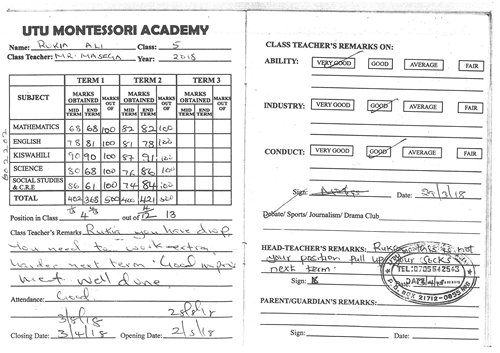 UTU MONTESSORI ACADEMY
Name: RUKIA ALI Class: 5
Class Teacher: MR. MASEGA Year: 2018
TERM 1 TERM 2 TERM 3
SUBJECT MARKS OBTAINED MARKS OUT OF MARKS OBTAINED MARKS OUT OF MARKS OBTAINED MARKS OUT OF
MID TERM END TERM MID TERM END TERM MID TERM END TERM
MATHEMATICS 68 68 100 82 82 100
ENGLISH 78 81 100 81 78 100
KISWAHILI 90 90 100 87 91 100
SCIENCE 80 68 100 76 86 100
SOCIAL STUDIES & C.R.E 86 61 100 74 84 100
TOTAL 402 368 500 400 421 500
Position in Class out of 12 13
Class Teacher's Remarks Rukia you have drop
You need to work extra
harder next term. Good
well done
Attendance: Good
3/8/18 28/8/18
Closing Date: 3/4/18 Opening Date: 2/5/18
CLASS TEACHER'S REMARKS ON:
ABILITY: VERY GOOD GOOD AVERAGE FAIR
INDUSTRY: VERY GOOD GOOD AVERAGE FAIR
CONDUCT: VERY GOOD GOOD AVERAGE FAIR
Sign: Date: 29/3/18
Debate/ Sports/ Journalism/ Drama Club
HEAD-TEACHER'S REMARKS: Rukia this is not
your position pull up your socks
next term.
TEL:0705642543
Sign: DATE
P.O. BOX 21712-00
PARENT/GUARDIAN'S REMARKS:
Sign: Date: